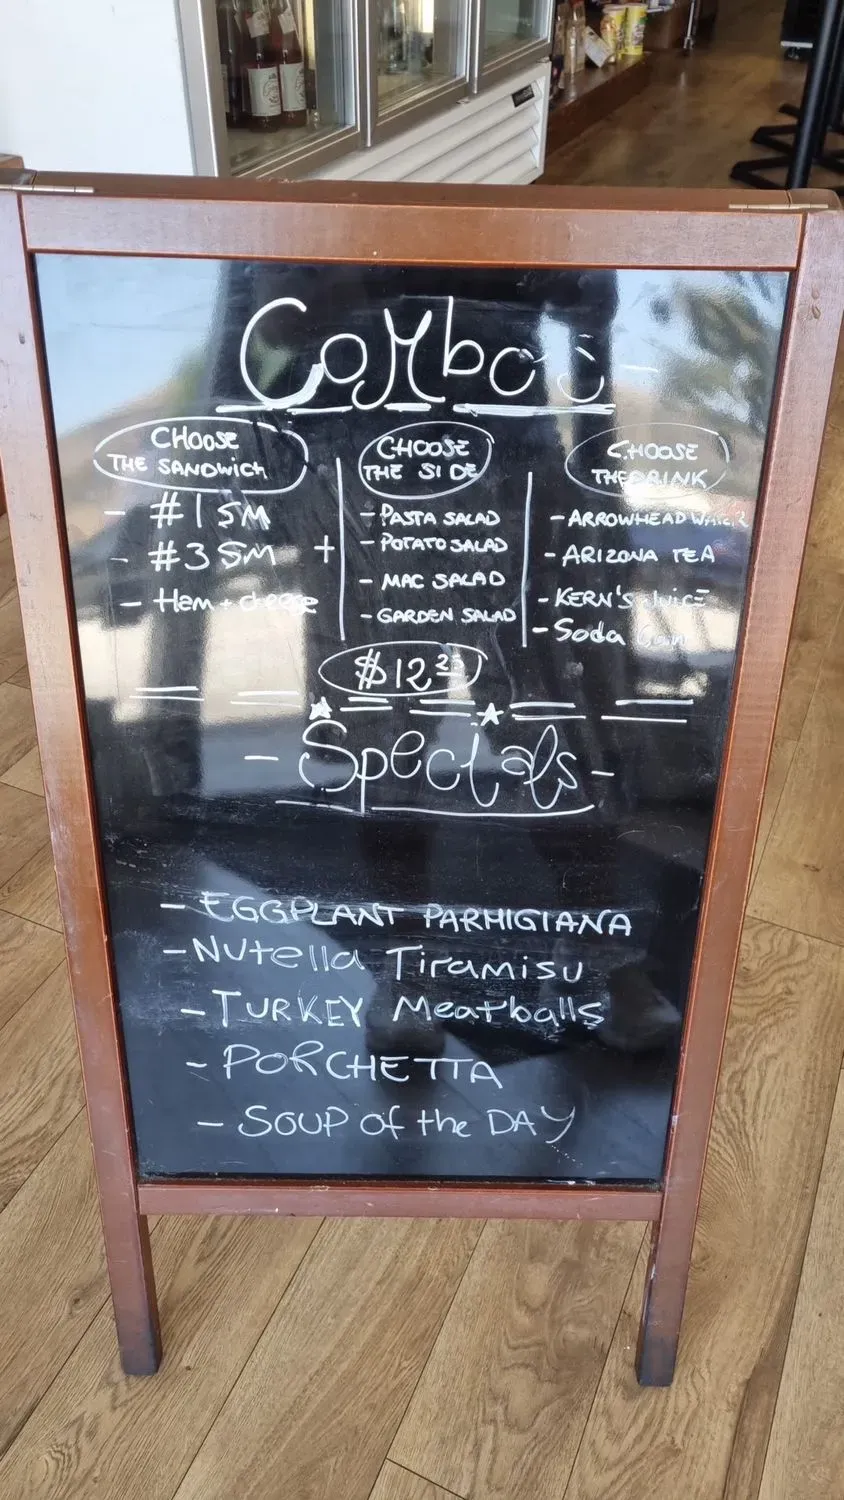 Combos -
CHOOSE
THE SANDWICH
- #1 SM
- #3 SM +
- Ham + cheese
CHOOSE
THE SIDE
- PASTA SALAD
- POTATO SALAD
- MAC SALAD
- GARDEN SALAD
CHOOSE
THE DRINK
- ARROWHEAD WATER
- ARIZONA TEA
- KERN'S JUICE
- Soda Can
$12 25
- Specials -
- EGGPLANT PARMIGIANA
- Nutella Tiramisu
- TURKEY Meatballs
- PORCHETTA
- SOUP of the DAY